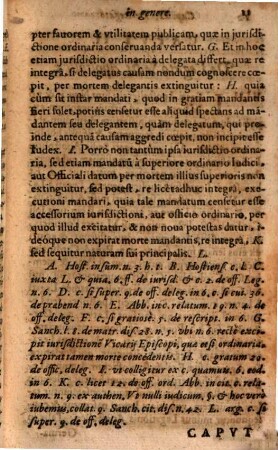 in genere. 11
pter favorem & vtilitatem publicam, quæ in jurisdi-
ctione ordinaria conseruanda versatur. G. Et in hoc
etiam jurisdictio ordinaria à delegata differt, quæ re
integrâ, si delegatus causam nondum cognoscere cœ-
pit, per mortem delegantis extinguitur: H. quia
cùm sit instar mandati, quod in gratiam mandantis
fieri solet, potiùs censetur esse aliquid spectans ad ma-
dantem seu delegantem, quàm delegatum, qui pro-
inde, antequā causam aggredi cœpit, non incipit esse
Iudex. I. Porrò non tantùm ipsa iurisdictio ordina-
ria, sed etiam mandatū à superiore ordinario Iudici,
aut Officiali datum per mortem illius superioris non
extinguitur, sed potest, re licet adhuc integra, exe-
cutioni mandari, quia tale mandatum censetur esse
accessorium iurisdictioni, aut officio ordinario, per
quod illud excitatur, & non noua potestas datur,
ideóque non expirat morte mandantis, re integra, K.
sed sequitur naturam sui principalis. L.
A. Host. in sum. n. 3. h. t. B. Hostiens. c. l. C.
iuxta L. & quia. 6. ff. de iurisd. & c. 2. de off. Leg.
n. 6. D. c. si super. 9. de off. deleg. in 6. & c. si cui. 36.
de præbend. n. 6. E. Abb. inc. relatum. n. 2. & 4. de
off. deleg. F. c. si gratiosè. 5. de rescript. in 6. G.
Sanch. l. 8. de matr. dis. 28. n. 5. vbi n. 6. rectè exci-
pit iurisdictionē Vicarij Episcopi, quæ etsi ordinaria,
expirat tamen morte concedentis. H. c. gratum 20.
de offic. deleg. I. vt colligitur ex c. quamuis. 6. eod.
in 6. K. c. licet 12. de off. ord. Abb. in cit. c. rela-
tum. n. 9. ex authen. Vt nulli iudicum, §. & hoc verò
iubemus, collat. 9. Sanch. cit. dis. n. 42. L. arg. c. si
super. 9. de off. deleg.
CAPVT